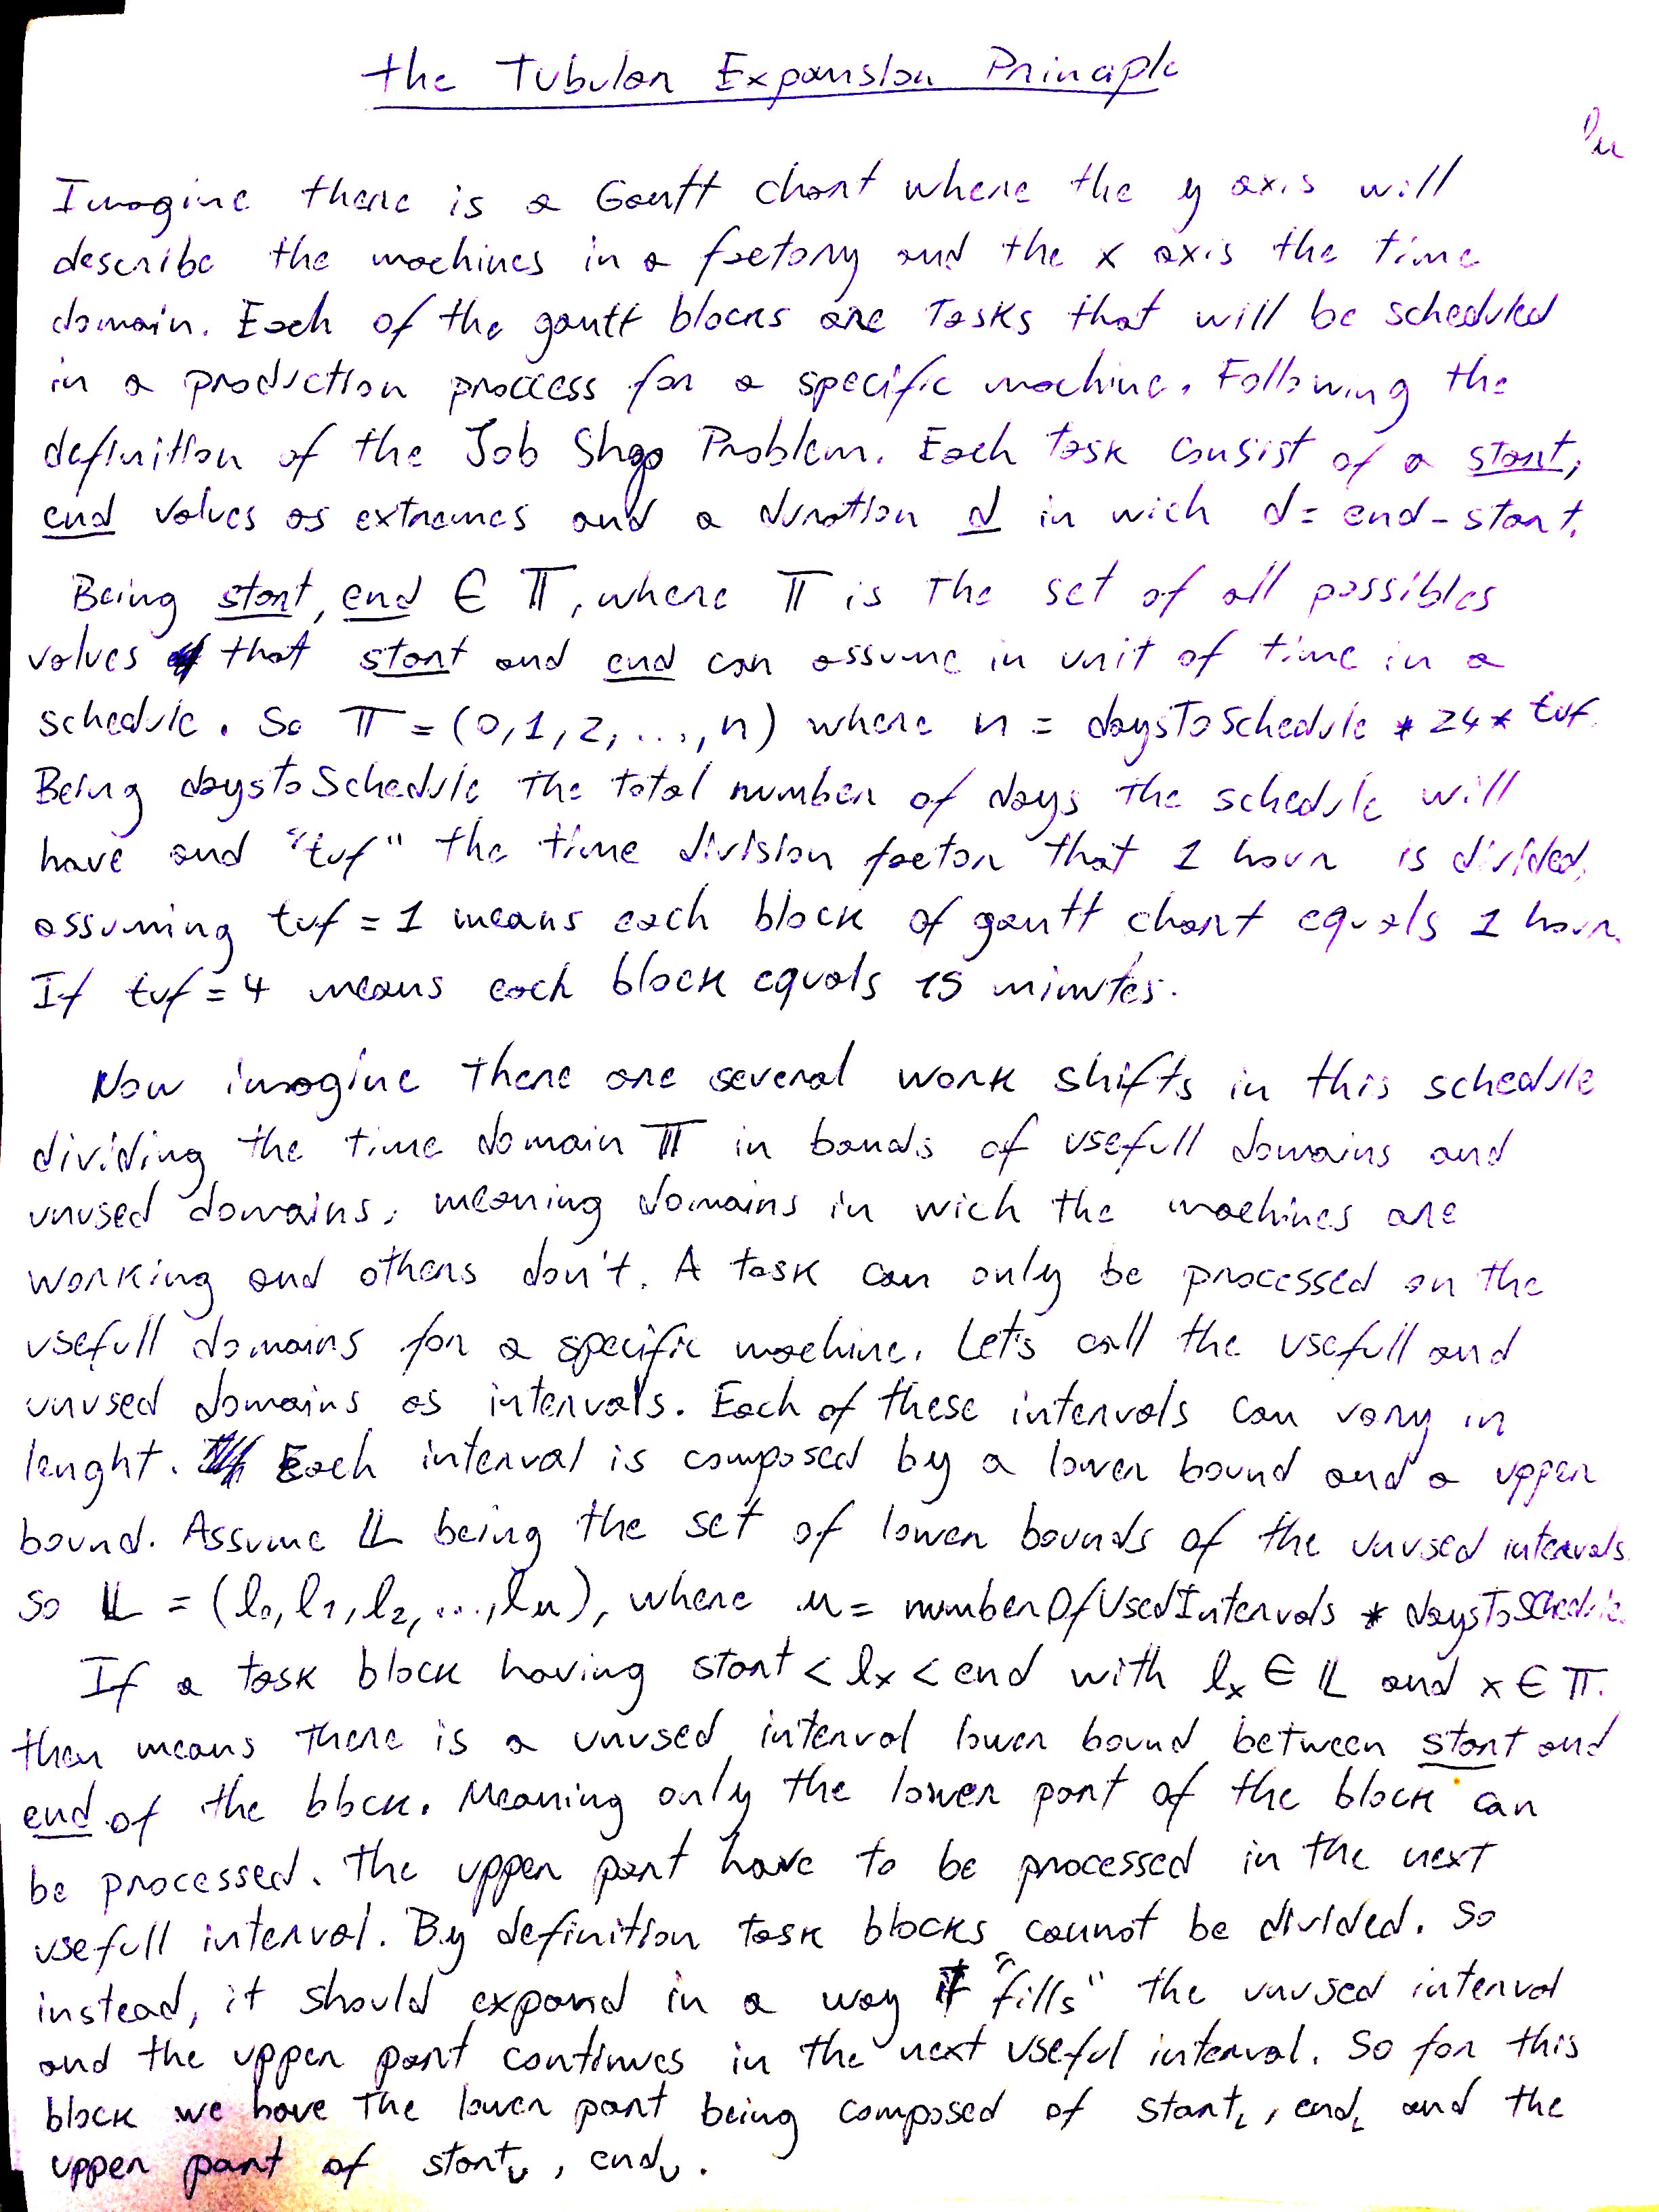 the Tubular Expansion Principle
lu
Imagine there is a Gantt chart where the y axis will
describe the machines in a factory and the x axis the time
domain. Each of the gantt blocks are Tasks that will be scheduled
in a production proccess for a specific machine. Following the
definition of the Job Shop Problem. Each task consist of a start,
end values as extremes and a duration d in wich d = end - start.
Being start, end ∈ 𝕋, where 𝕋 is the set of all possibles
values that start and end can assume in unit of time in a
schedule. So 𝕋 = (0,1,2,...,n) where n = daysToSchedule * 24 * tuf.
Being daystoSchedule the total number of days the schedule will
have and "tuf" the time division factor that 1 hour is divided.
assuming tuf = 1 means each block of gantt chart equals 1 hour.
If tuf = 4 means each block equals 15 minutes.
Now imagine there are several work shifts in this schedule
dividing the time domain 𝕋 in bands of usefull domains and
unused domains, meaning domains in wich the machines are
working and others don't. A task can only be processed on the
usefull domains for a specific machine. Let's call the usefull and
unused domains as intervals. Each of these intervals can vary in
lenght. Each interval is composed by a lower bound and a upper
bound. Assume 𝕃 being the set of lower bounds of the unused intervals.
so 𝕃 = (l₀, l₁, l₂, ..., lu), where u = numberOfUsedIntervals * daysToSchedule.
If a task block having start < lₓ < end with lₓ ∈ 𝕃 and x ∈ 𝕋.
then means there is a unused interval lower bound between start and
end of the block. Meaning only the lower part of the block can
be processed. the upper part have to be processed in the next
usefull interval. By definition task blocks cannot be divided. So
instead, it should expand in a way it "fills" the unused interval
and the upper part continues in the next useful interval. So for this
block we have the lower part being composed of start_L, end_L and the
upper part of start_U, end_U.